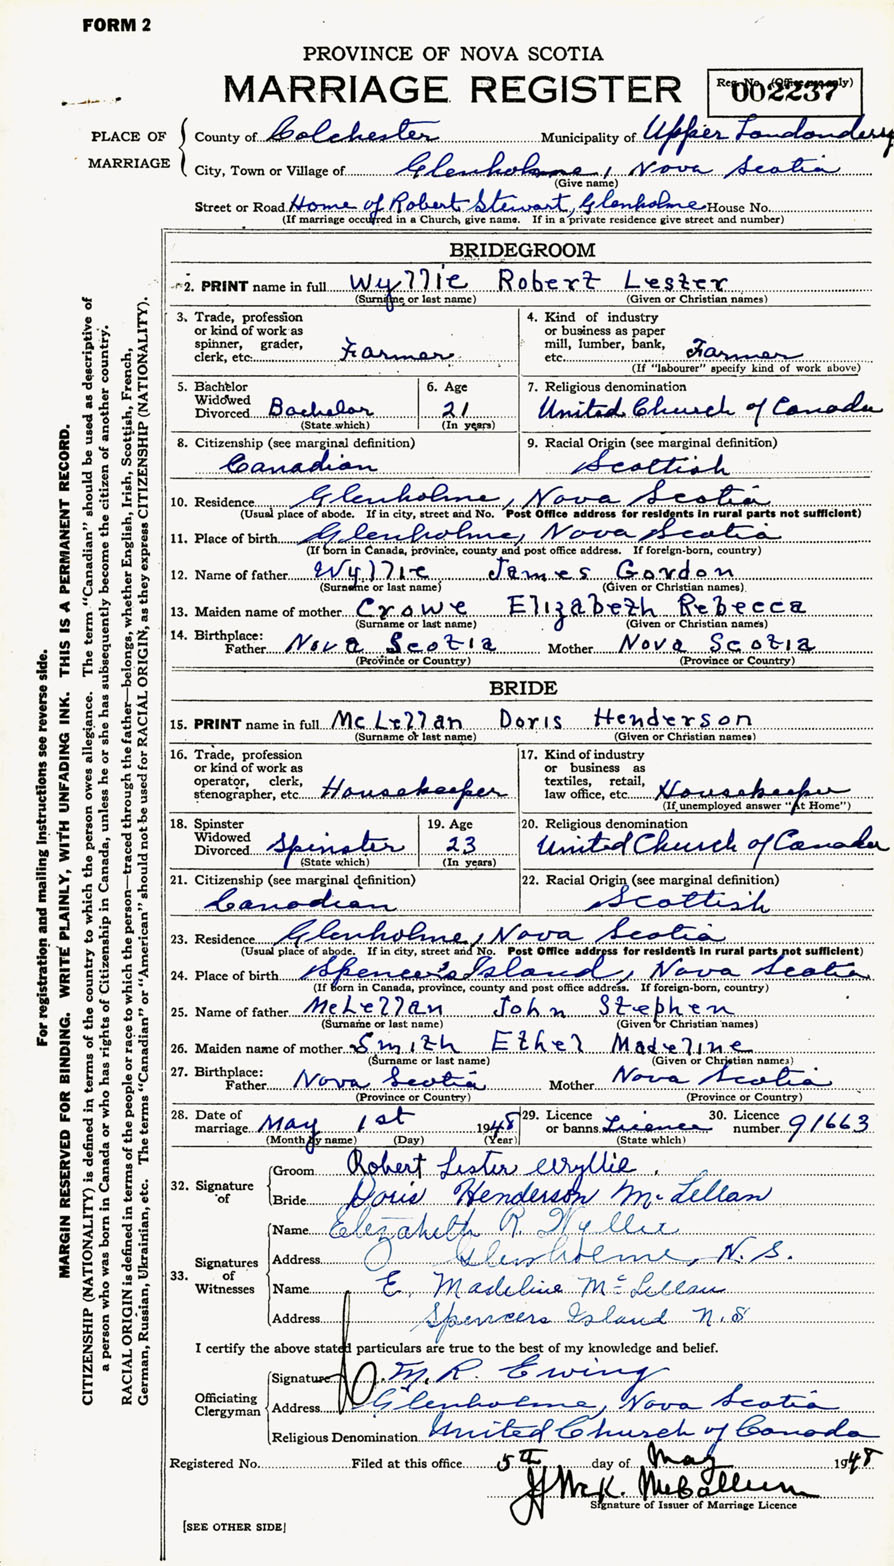 FORM 2
PROVINCE OF NOVA SCOTIA
MARRIAGE REGISTER
Reg. No. (Office use only)
002237
PLACE OF MARRIAGE
County of Colchester Municipality of Upper Londonderry
City, Town or Village of Glenholme, Nova Scotia
(Give name)
Street or Road Home of Robert Stewart, Glenholme House No.
(If marriage occurred in a Church, give name. If in a private residence give street and number)
BRIDEGROOM
2. PRINT name in full Wyllie Robert Lester
(Surname or last name) (Given or Christian names)
3. Trade, profession or kind of work as spinner, grader, clerk, etc. Farmer
4. Kind of industry or business as paper mill, lumber, bank, etc. Farmer
(If "labourer" specify kind of work above)
5. Bachelor Widowed Divorced Bachelor
(State which)
6. Age 21
(In years)
7. Religious denomination
United Church of Canada
8. Citizenship (see marginal definition)
Canadian
9. Racial Origin (see marginal definition)
Scottish
10. Residence Glenholme, Nova Scotia
(Usual place of abode. If in city, street and No. Post Office address for residents in rural parts not sufficient)
11. Place of birth Glenholme, Nova Scotia
(If born in Canada, province, county and post office address. If foreign-born, country)
12. Name of father Wyllie James Gordon
(Surname or last name) (Given or Christian names)
13. Maiden name of mother Crowe Elizabeth Rebecca
(Surname or last name) (Given or Christian names)
14. Birthplace:
Father Nova Scotia Mother Nova Scotia
(Province or Country) (Province or Country)
BRIDE
15. PRINT name in full McLellan Doris Henderson
(Surname or last name) (Given or Christian names)
16. Trade, profession or kind of work as operator, clerk, stenographer, etc. Housekeeper
17. Kind of industry or business as textiles, retail, law office, etc. Housekeeper
(If unemployed answer "At Home")
18. Spinster Widowed Divorced Spinster
(State which)
19. Age 23
(In years)
20. Religious denomination
United Church of Canada
21. Citizenship (see marginal definition)
Canadian
22. Racial Origin (see marginal definition)
Scottish
23. Residence Glenholme, Nova Scotia
(Usual place of abode. If in city, street and No. Post Office address for residents in rural parts not sufficient)
24. Place of birth Spencer's Island, Nova Scotia
(If born in Canada, province, county and post office address. If foreign-born, country)
25. Name of father McLellan John Stephen
(Surname or last name) (Given or Christian names)
26. Maiden name of mother Smith Ethel Madeline
(Surname or last name) (Given or Christian names)
27. Birthplace:
Father Nova Scotia Mother Nova Scotia
(Province or Country) (Province or Country)
28. Date of marriage May 1st 1948
(Month by name) (Day) (Year)
29. Licence or banns Licence
(State which)
30. Licence number 91663
32. Signature of
Groom Robert Lester Wyllie
Bride Doris Henderson McLellan
33. Signatures of Witnesses
Name Elizabeth R. Wyllie
Address Glenholme, N.S.
Name E. Madeline McLellan
Address Spencers Island N.S
I certify the above stated particulars are true to the best of my knowledge and belief.
Officiating Clergyman
Signature M. R. Ewing
Address Glenholme, Nova Scotia
Religious Denomination United Church of Canada
Registered No. Filed at this office 5th day of May 1948
McK. McCallum
Signature of Issuer of Marriage Licence
[SEE OTHER SIDE]
For registration and mailing instructions see reverse side.
MARGIN RESERVED FOR BINDING. WRITE PLAINLY, WITH UNFADING INK. THIS IS A PERMANENT RECORD.
CITIZENSHIP (NATIONALITY) is defined in terms of the country to which the person owes allegiance. The term "Canadian" should be used as descriptive of
a person who was born in Canada or who has rights of Citizenship in Canada, unless he or she has subsequently become the citizen of another country.
RACIAL ORIGIN is defined in terms of the people or race to which the person—traced through the father—belongs, whether English, Irish, Scottish, French,
German, Russian, Ukrainian, etc. The terms "Canadian" or "American" should not be used for RACIAL ORIGIN, as they express CITIZENSHIP (NATIONALITY).